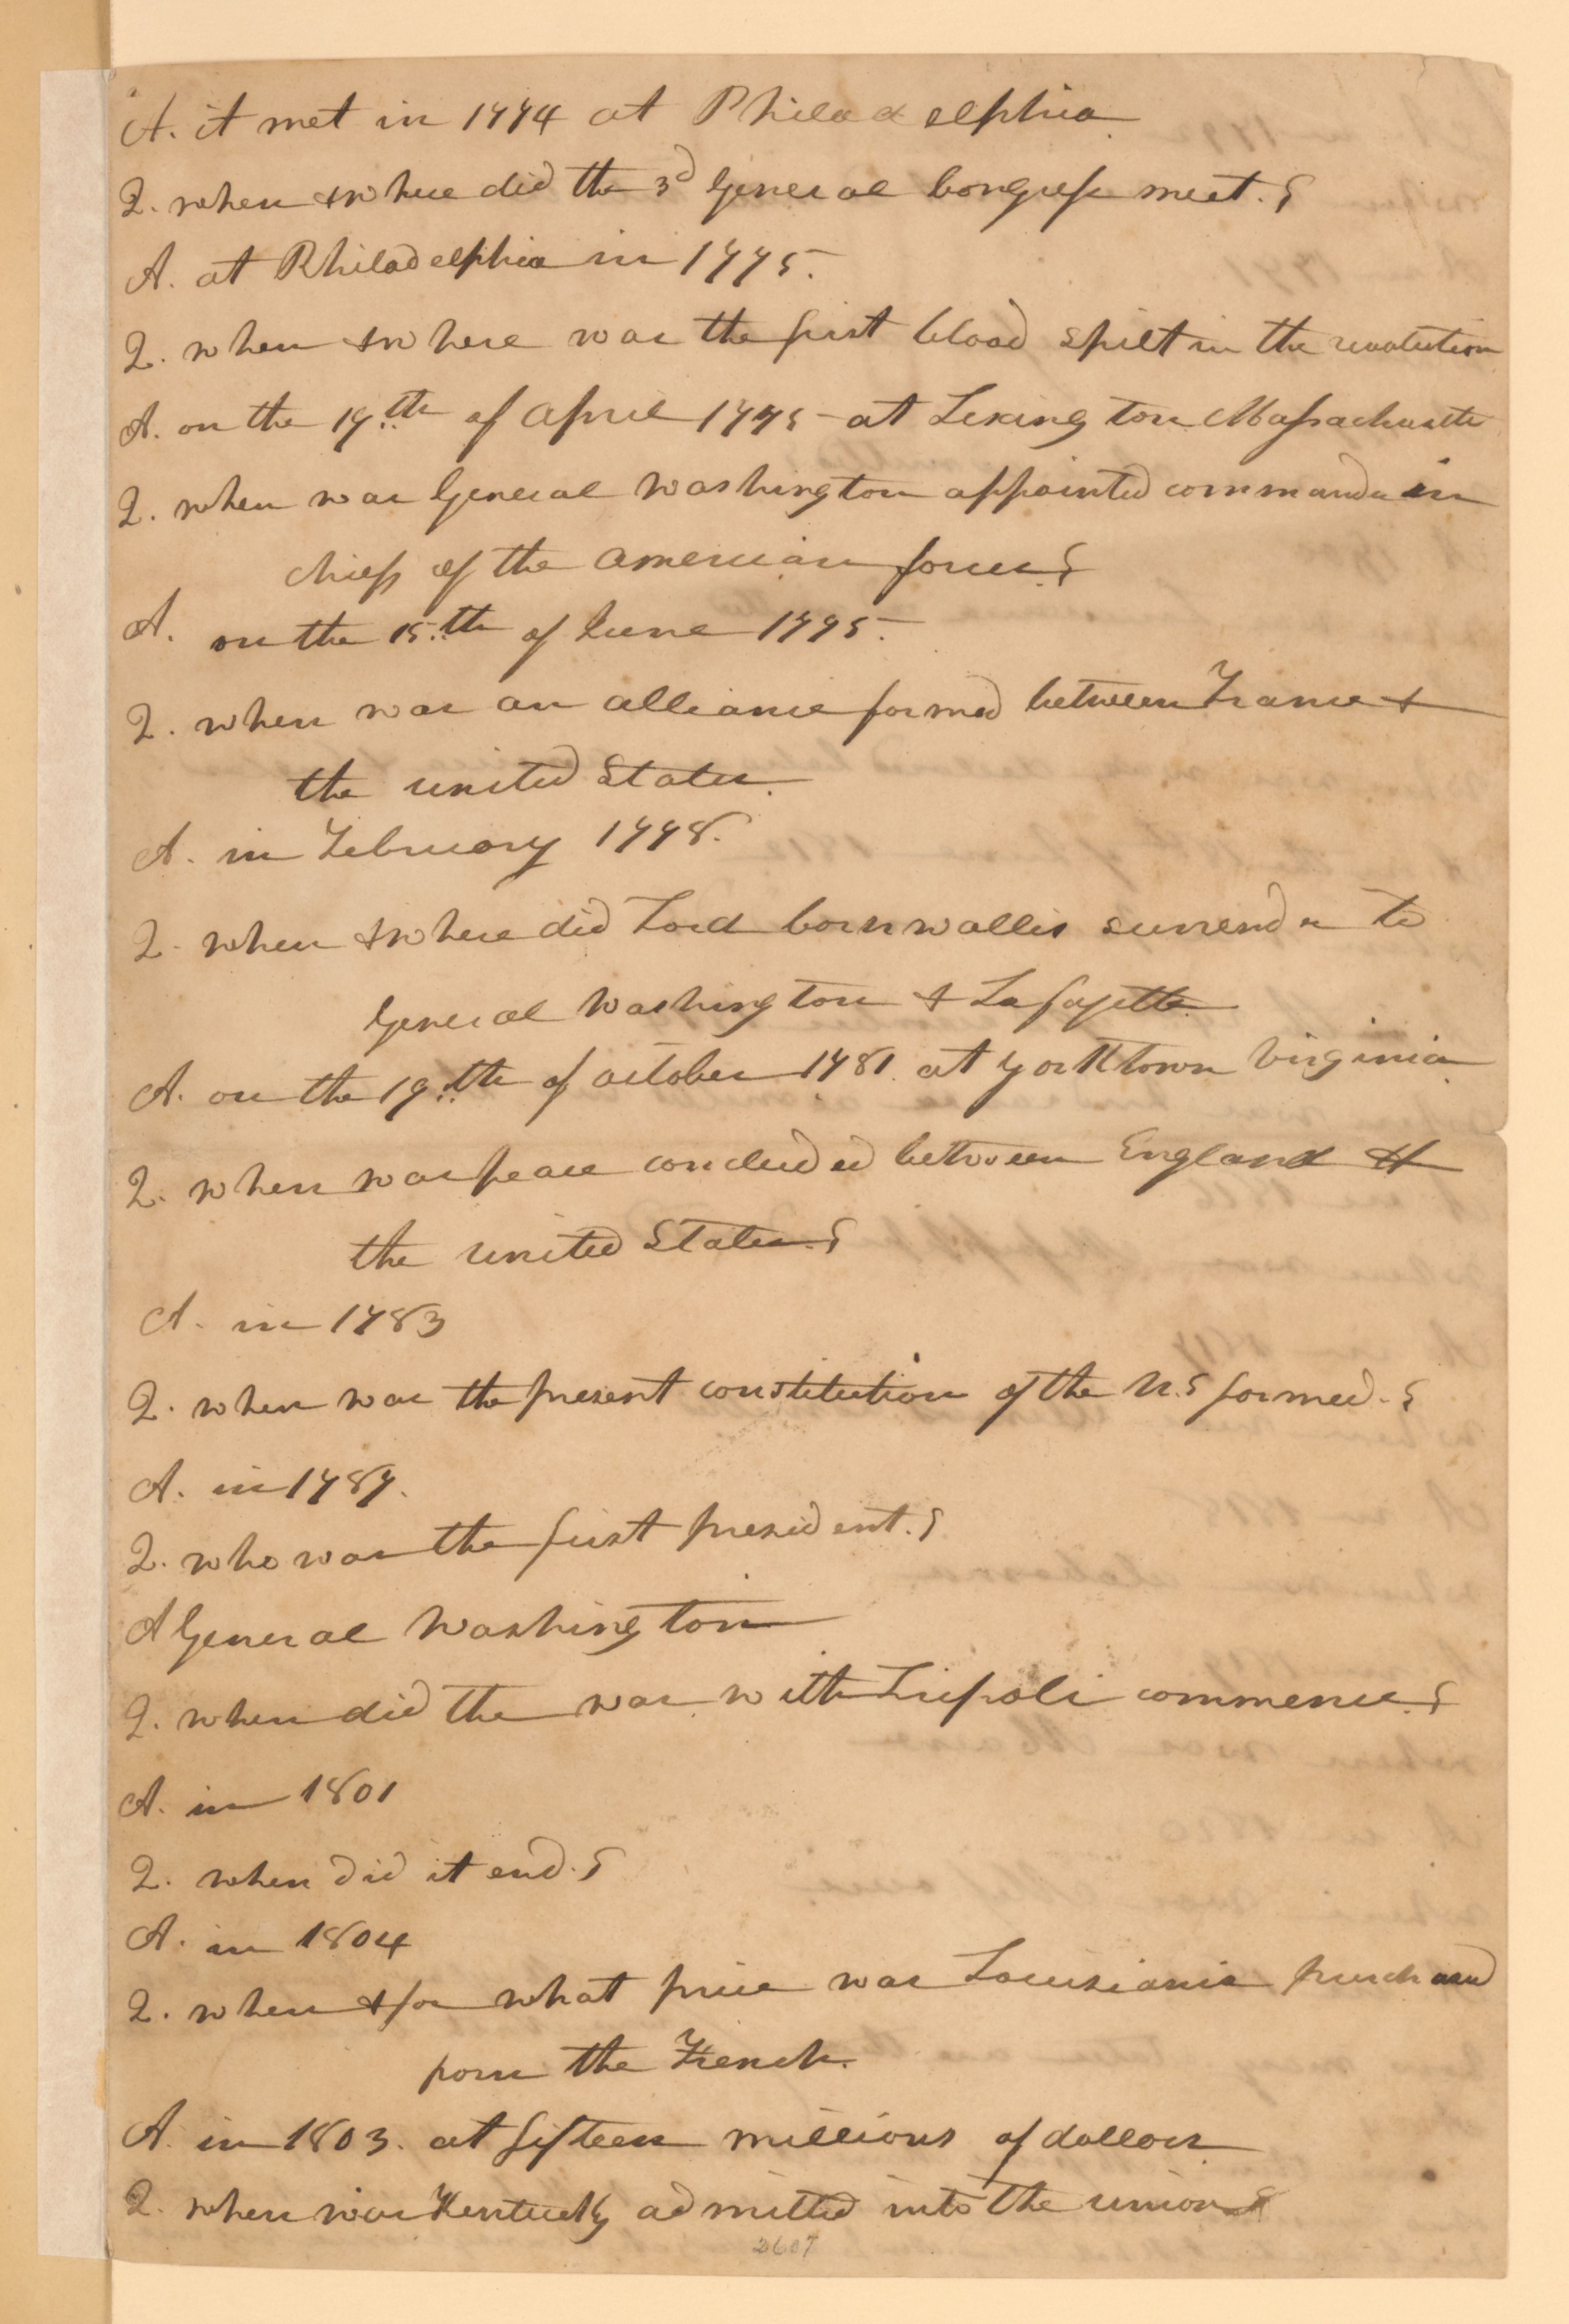 A. it met in 1774 at Philadelphia.
Q. when & where did the 3d General Congress meet.?
A. at Philadelphia in 1775.
Q. when & where was the first blood spilt in the revolution
A. on the 19th of april 1775 - at Lexington Massachusetts
Q. when was General Washington appointed commander in
chief of the american forces.?
A. on the 15th of June 1775.
Q. when was an alliance formed between France &
the united States.
A. in February 1778.
Q. when & where did Lord Cornwallis surrender to
General Washington & Lafayette.
A. on the 19th of october 1781. at yorktown Virginia.
Q. when was peace concluded between England &
the united States.?
A. in 1783
Q. when was the present constitution of the U.S formed.?
A. in 1787.
Q. who was the first president.?
A General Washington
Q. when did the war with Tripoli commence.?
A. in 1801
Q. when did it end.?
A. in 1804
Q. when & for what price was Louisiania purchased
from the French.
A. in 1803. at fifteen millions of dollars.
Q. when was Kentucky admitted into the union?
2607